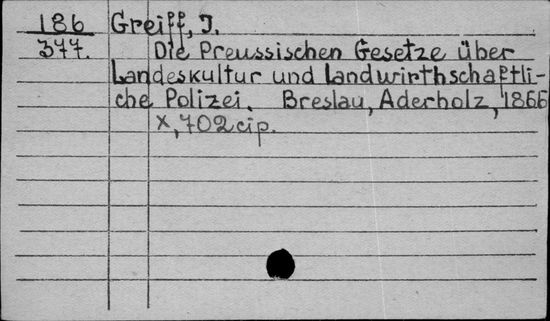 186 Greiff, J.
377. Die Preussischen Gesetze über
Landeskultur und Landwirthschaftli-
che Polizei. Breslau, Aderholz, 1866
X, 702 cip.